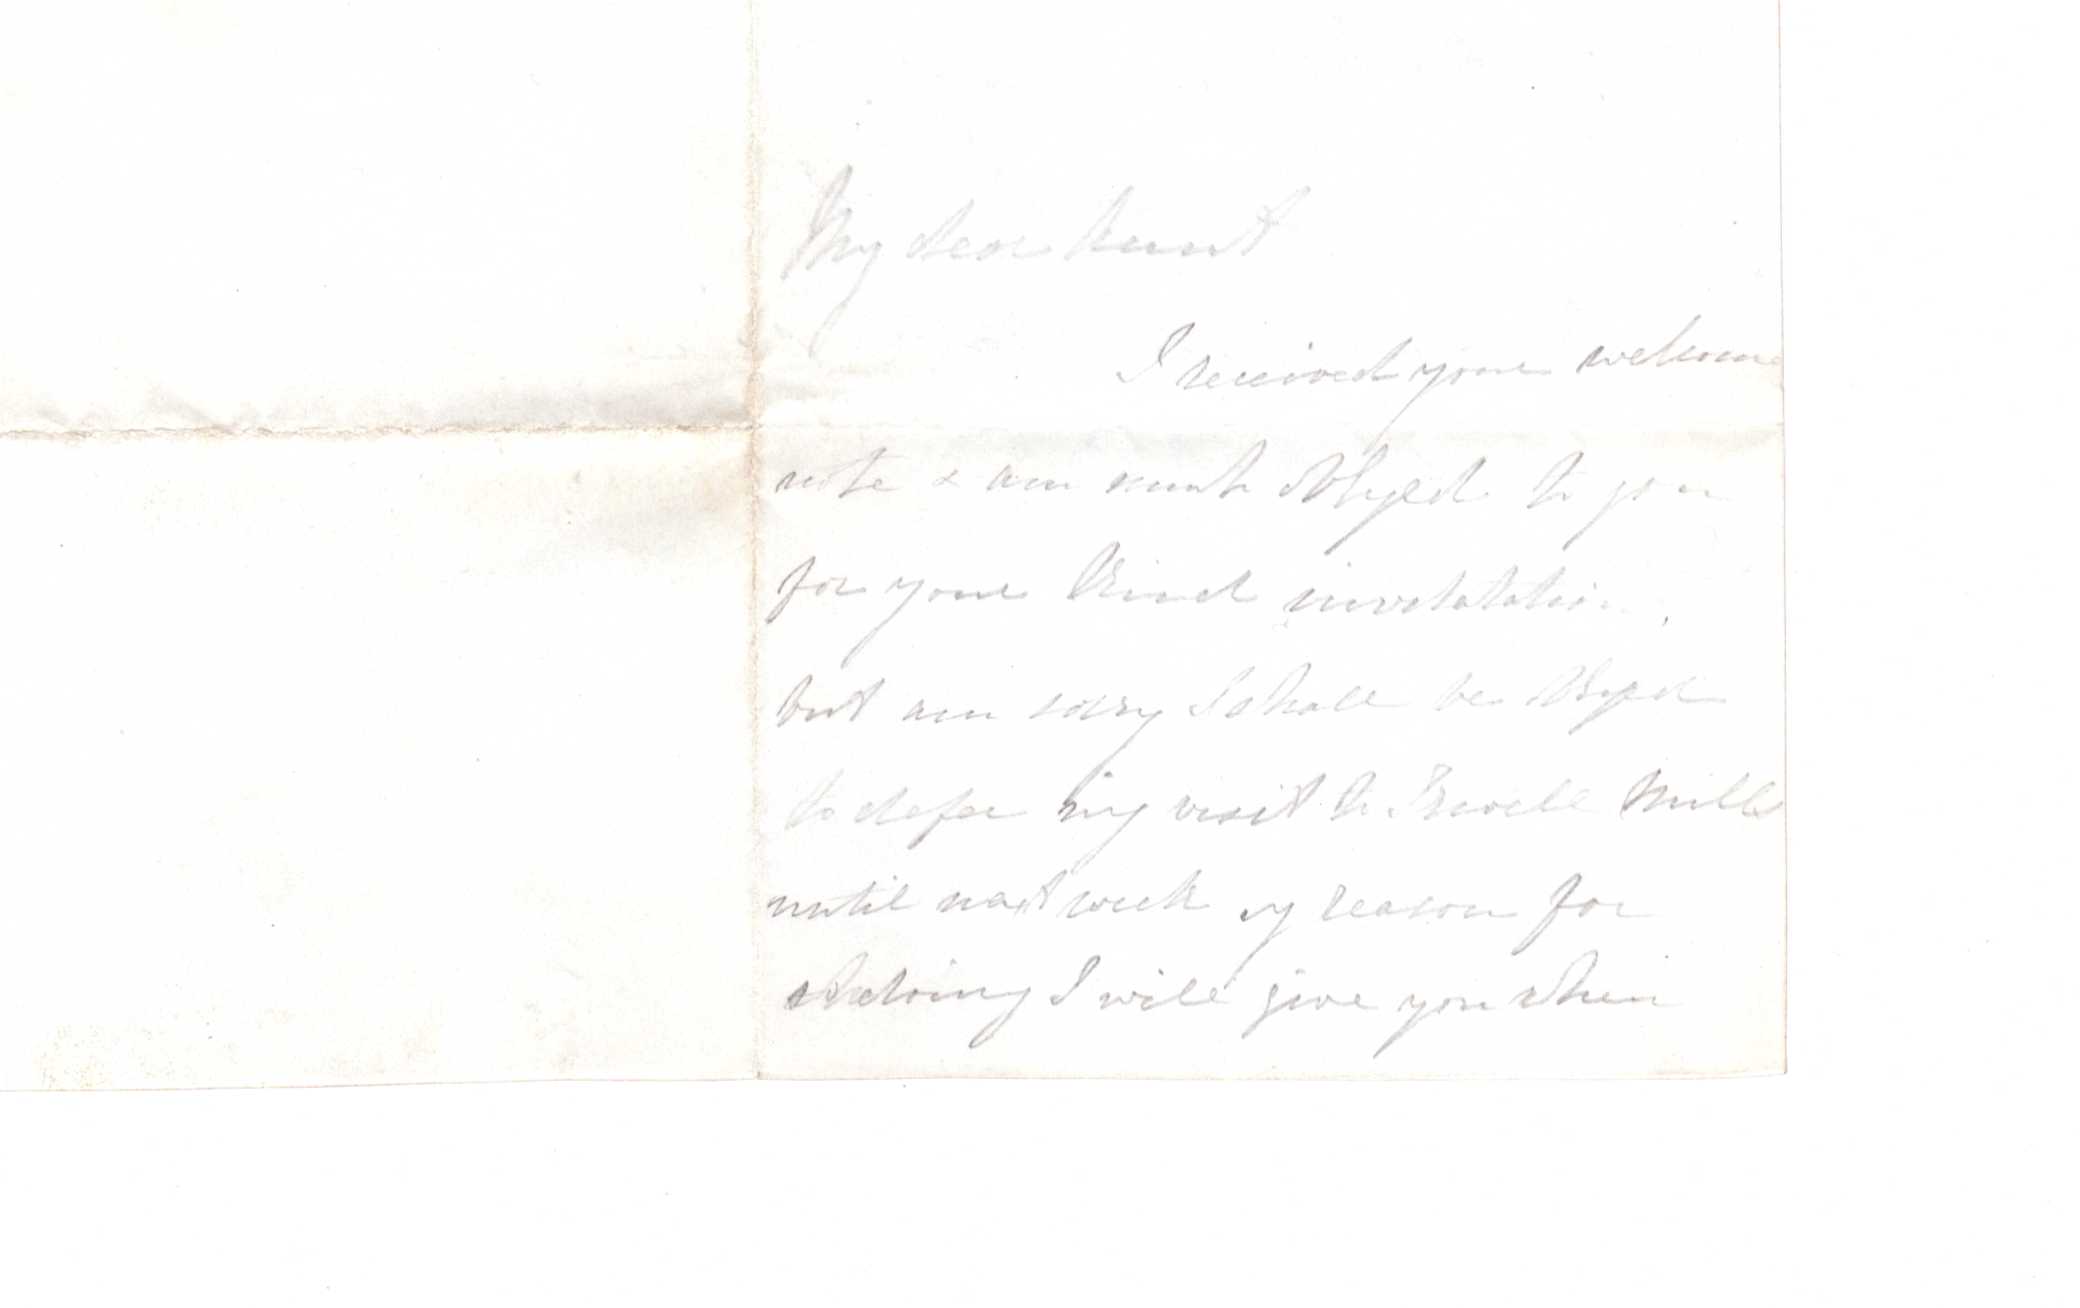 My dear Aunt
I received your welcome
note & am much obliged to you
for your kind invitation,
but am sorry I shall be obliged
to defer my visit to Irwell Mills
until next week my reason for
so doing I will give you when